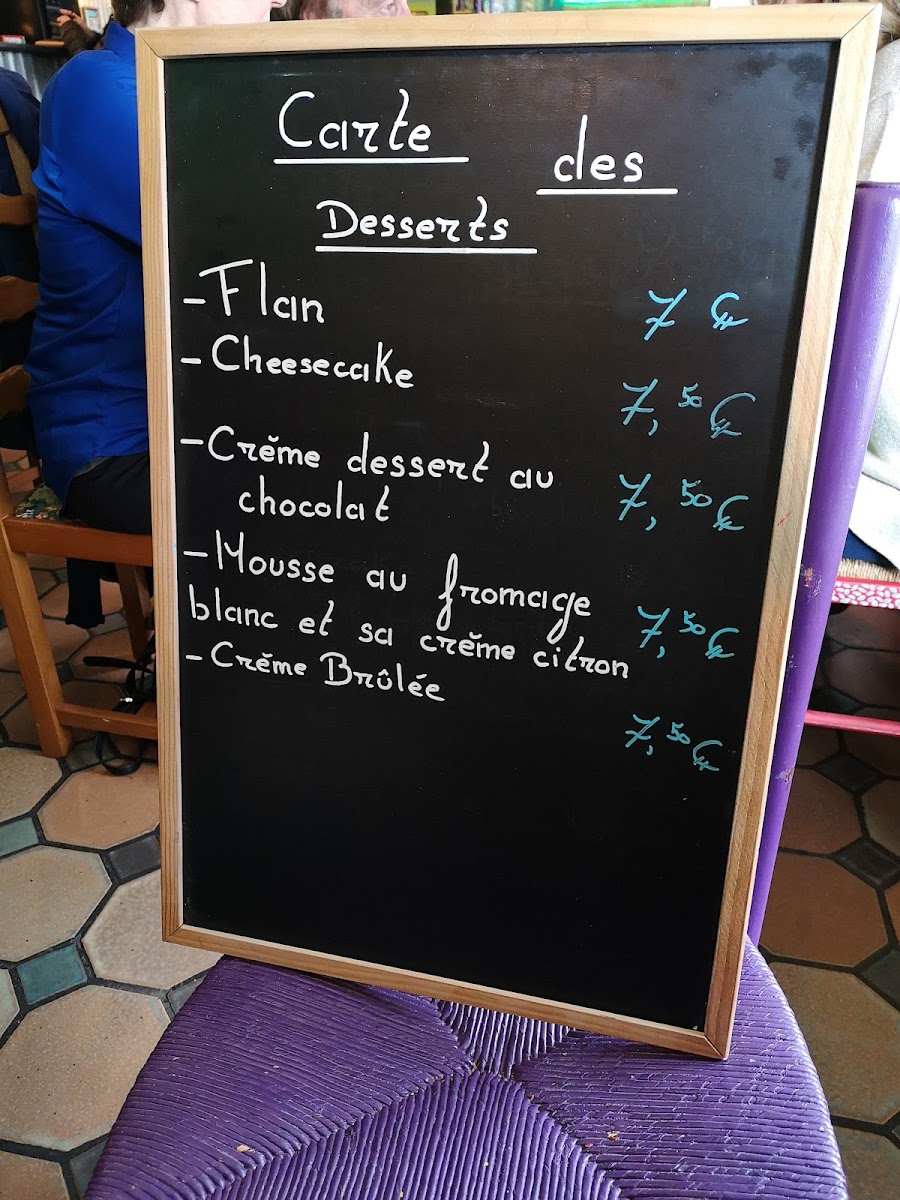 Carte des
Desserts
- Flan 7 €
- Cheesecake 7,50 €
- Crĕme dessert au
chocolat 7,50 €
- Mousse au fromage
blanc et sa crĕme citron 7,50 €
- Crĕme Brûlée 7,50 €